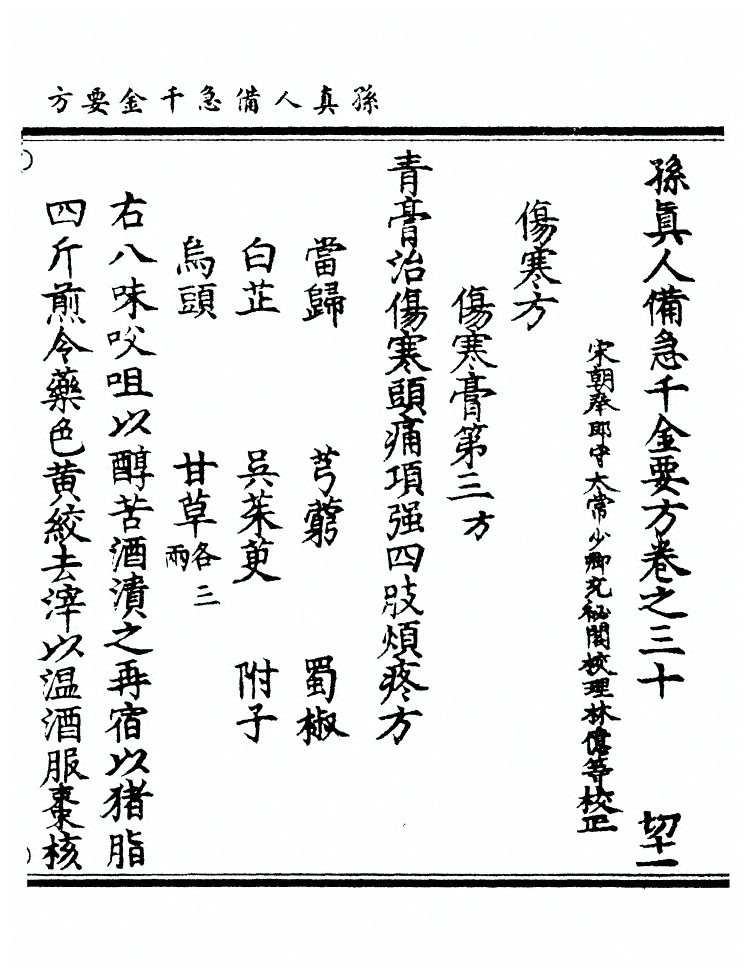 孫真人備急千金要方
孫眞人備急千金要方卷之三十 𭃄十一
宋朝奉郎守太常少卿充秘閣校理林億等校正
傷寒方
傷寒膏第三方
青膏治傷寒頭痛項强四肢煩疼方
當歸 芎藭 蜀椒
白芷 吳茱萸 附子
烏頭 甘草各三兩
右八味㕮咀以醇苦酒漬之再宿以猪脂
四斤煎令藥色黄絞去滓以温酒服棗核